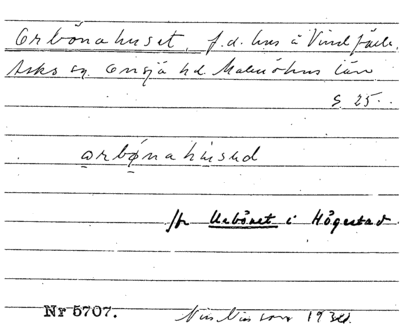 Orbönahuset, f.d. hus i Vindfälle,
Asks sn. Onsjö hd. Malmöhus län
S 25.
orbönahused
jfr Urbönet i Högestad
Nr 5707.
Nils Nilsson 1934.